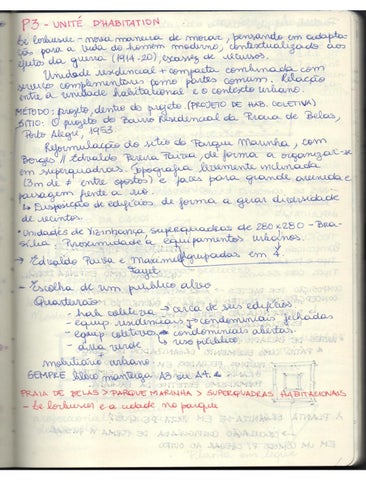 P3 - UNITÉ D'HABITATION
Le Corbusier - nova maneira de morar, pensando em adapta-
ções para a vida do homem moderno, contextualizado aos
efeitos da guerra (1914-20), escassez de recursos.
Unidade residencial + compacta combinada com
serviço complementares como partes comum. Relação
entre a unidade habitacional e o contexto urbano.
MÉTODO: projeto, dentro do projeto (PROJETO DE HAB. COLETIVA)
SÍTIO: O projeto do Bairro Residencial da Praia de Belas,
Porto Alegre, 1953.
Reformulação do sítio do Parque Marinha, com
Borges // Edvaldo Pereira Paiva, de forma a organizar-se
em superquadras. Topografia levemente inclinada
(3m de ≠ entre opostos) e faces para grande avenida e
paisagem frente a rio.
↳ Disposição de edifícios de forma a gerar diversidade
de recintos.
• Unidades de Vizinhança, superquadras de 280x280 - Bra-
sília. Proximidade a equipamentos urbanos.
→ Edvaldo Paiva e agrupadas em 4.
- Escolha de um público alvo
Quarteirão:
- hab coletiva → cerca de seis edifícios
- equip residenciais → condomínios fechados
- equip coletivos → condomínios abertos
- área verde ↳ uso público
mobiliário urbano
SEMPRE levar manteiga A3 ou A4.
PRAIA DE BELAS > PARQUE MARINHA > SUPERQUADRAS HABITACIONAIS
- Le Corbusier e a cidade no parque